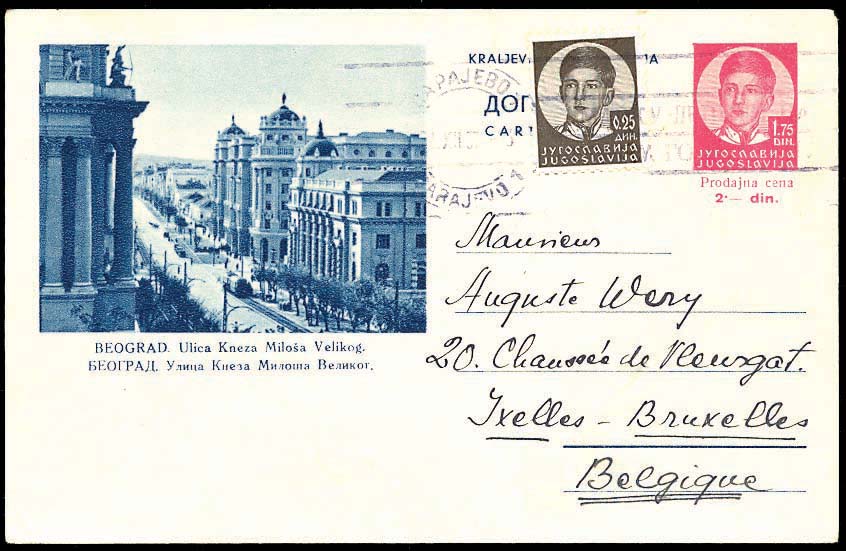 KRALJEV
ДОП
CART
САРАЈЕВО
SARAJEVO 1
0.25
ДИН.
ЈУГОСЛАВИЈА
JUGOSLAVIJA
1.75
DIN.
ЈУГОСЛАВИЈА
JUGOSLAVIJA
Prodajna cena
2·— din.
BEOGRAD. Ulica Kneza Miloša Velikog.
БЕОГРАД. Улица Кнеза Милоша Великог.
Monsieur
Auguste Wery
20. Chaussée de Vleurgat.
Ixelles - Bruxelles
Belgique